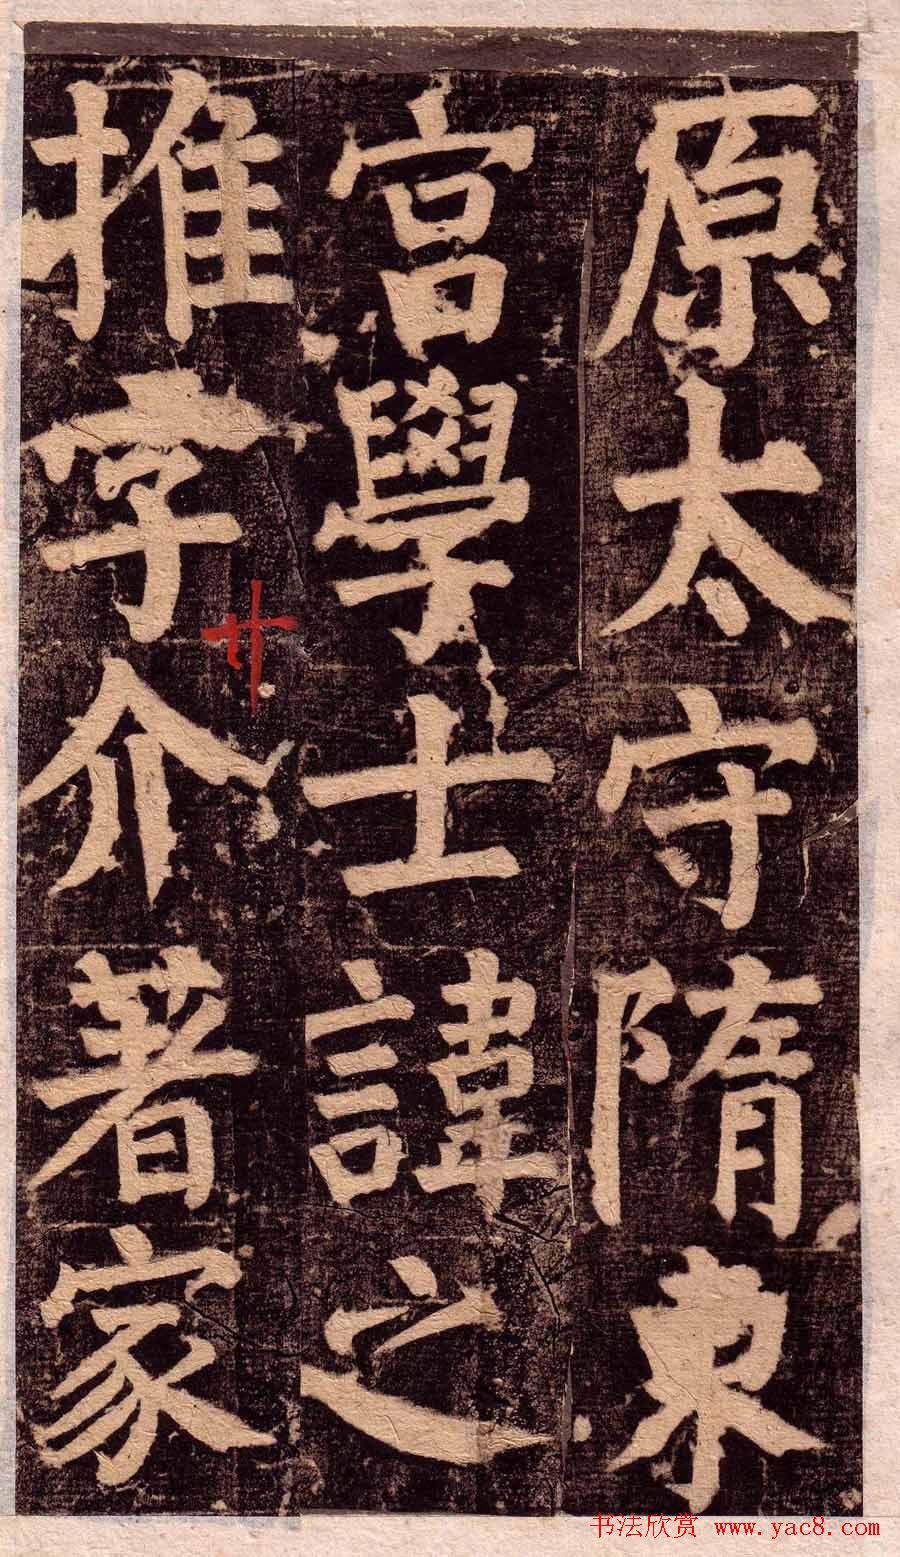 原太守隋東
宫學士諱之
推字介著家
廿
书法欣赏 www.yac8.com